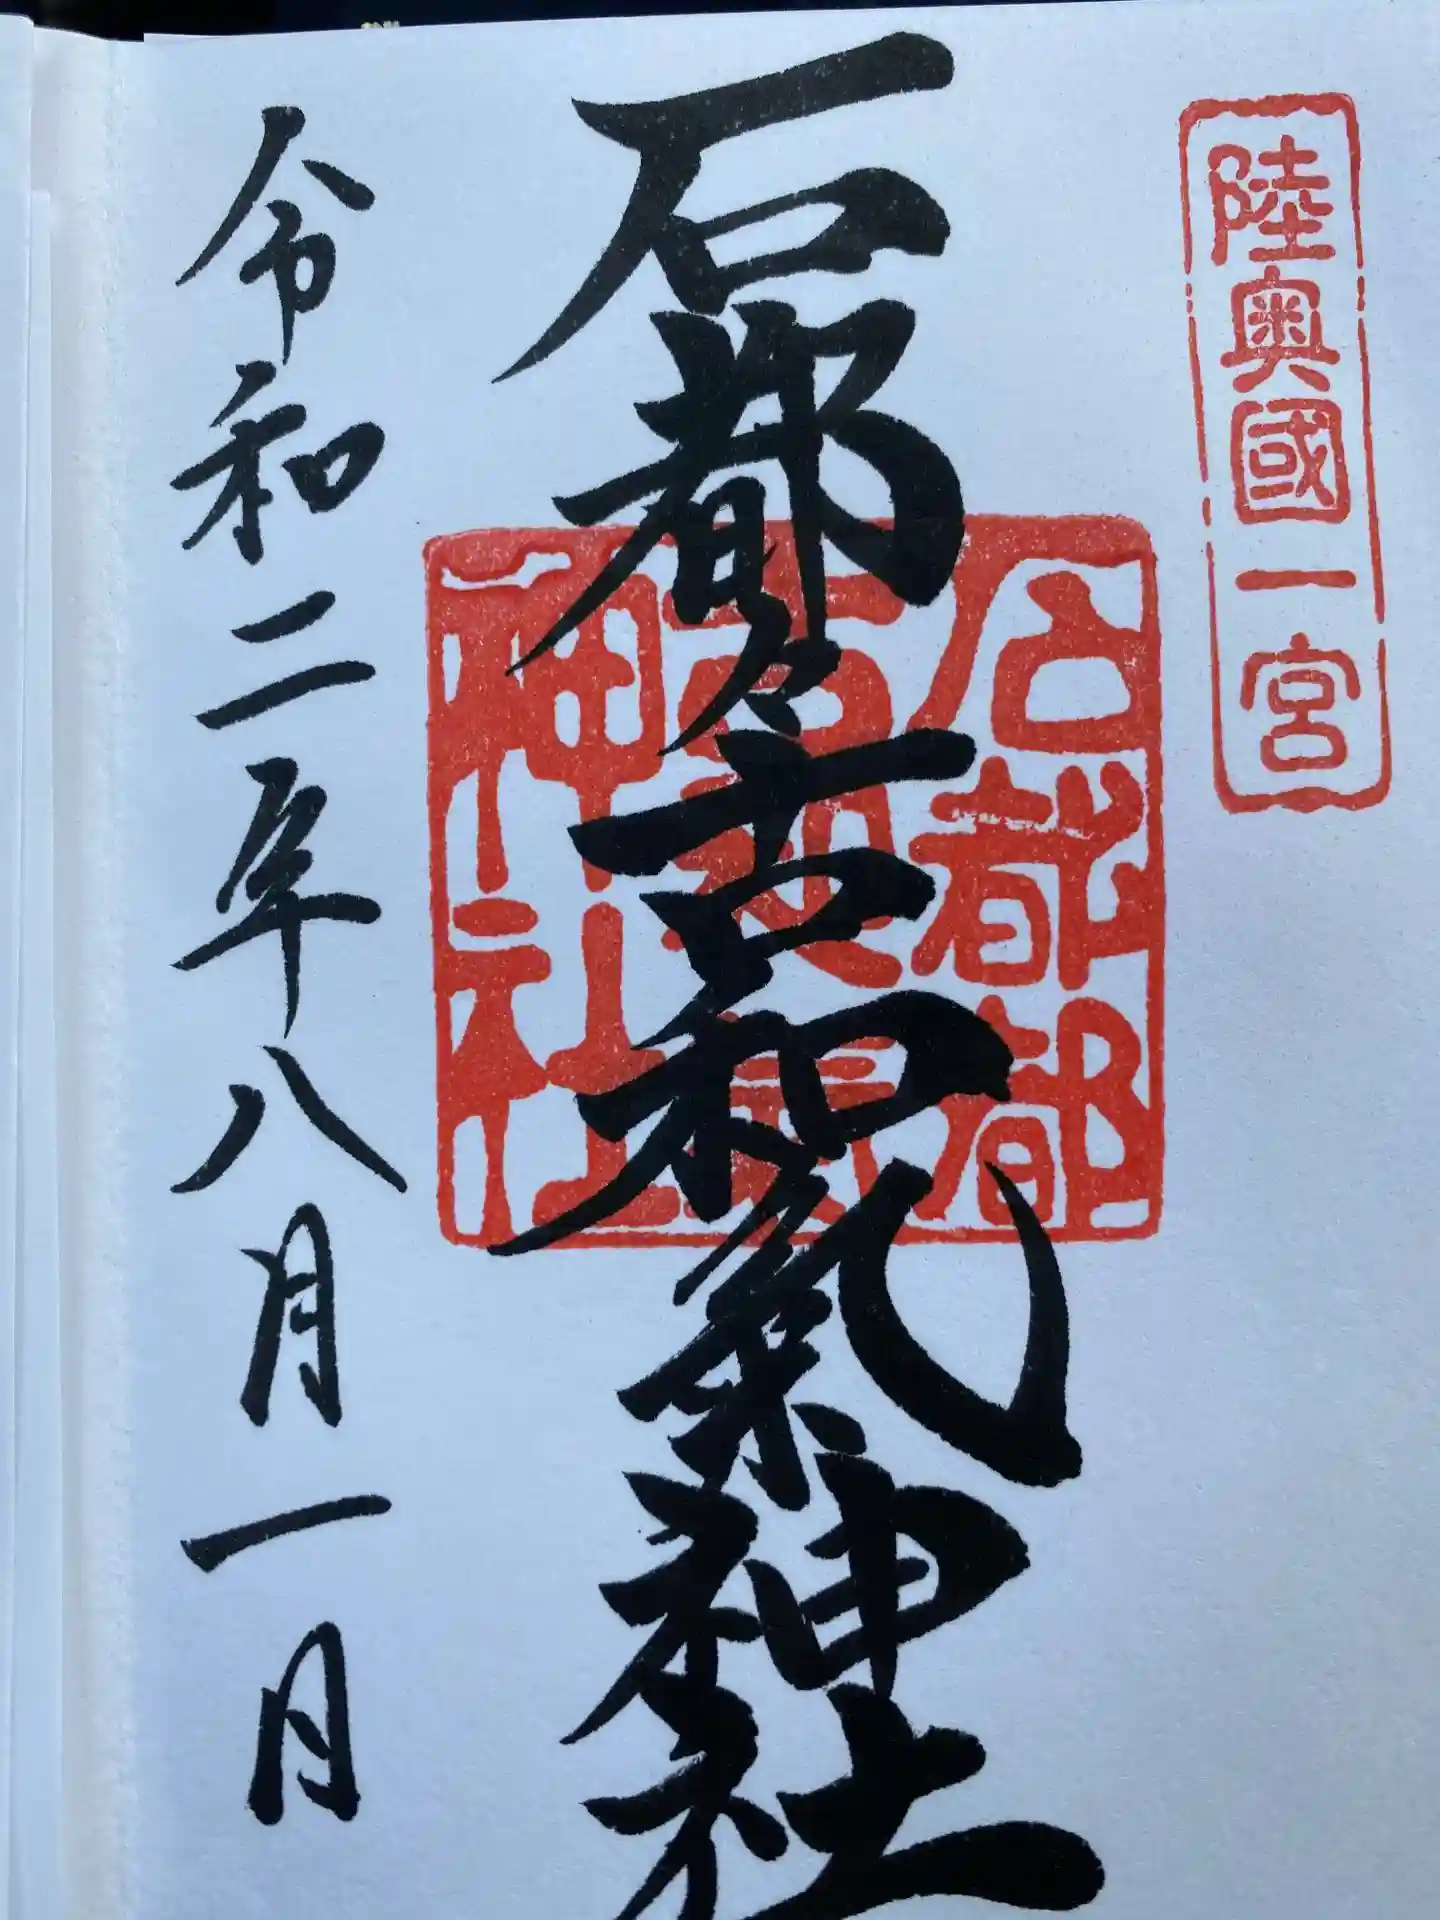 陸奥國一宮
石都々古和氣神社
石都都
古和氣
神社
令和二年八月一日